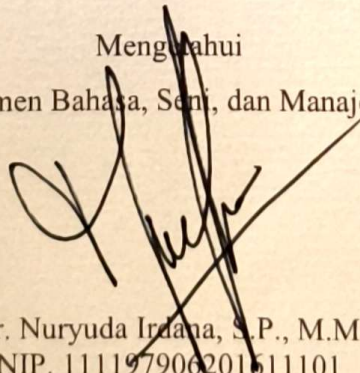 Mengetahui
men Bahasa, Seni, dan Manaj
r. Nuryuda Irdana, S.P., M.M
NIP. 111197906201611101